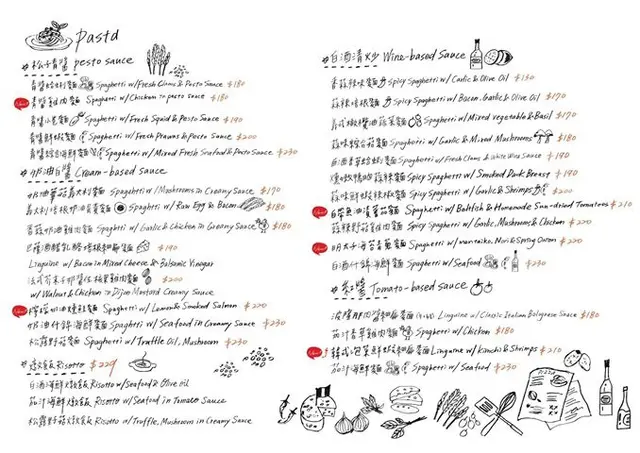 Pasta
松子青醬 pesto sauce
青醬蛤蜊麵 Spaghetti w/Fresh Clams & Pesto Sauce $180
青醬雞肉麵 Spaghetti w/Chicken in pesto sauce $180
青醬小卷麵 Spaghetti w/ Fresh Squid & Pesto Sauce $190
青醬鮮蝦麵 Spaghetti w/ Fresh Prawns & Pesto Sauce $200
青醬綜合海鮮麵 Spaghetti w/ Mixed Fresh Seafood & Pesto Sauce $230
奶油白醬 Cream-based sauce
奶油蘑菇義大利麵 Spaghetti w/ Mushrooms in Creamy Sauce $170
義大利培根奶油蛋黃麵 Spaghetti w/ Raw Egg & Bacon $180
香蒜奶油雞肉麵 Spaghetti w/ Garlic & Chicken in Creamy Sauce $180
巴薩米醋乳酪培根細扁麵 $190
Linguine w/ Bacon in Mixed Cheese & Balsamic Vinegar
法式芥末籽奶醬核桃雞肉麵 $200
w/ Walnut & Chicken in Dijon Mustard Creamy Sauce
檸檬奶油燻鮭麵 Spaghetti w/ Lemon & Smoked Salmon $220
奶油什錦海鮮麵 Spaghetti w/ Seafood in Creamy Sauce $230
松露野菇麵 Spaghetti w/ Truffle Oil, Mushroom $230
燉飯 Risotto $229
白酒海鮮燉飯 Risotto w/ Seafood & Olive oil
茄汁海鮮燉飯 Risotto w/ Seafood in Tomato Sauce
松露野菇燉飯 Risotto w/ Truffle, Mushroom in Creamy Sauce
白酒清炒 Wine-based Sauce
香蒜辣味麵 Spicy Spaghetti w/ Garlic & Olive Oil $150
蒜辣培根麵 Spicy Spaghetti w/ Bacon, Garlic & Olive Oil $170
橄欖油蔬菜麵 Spaghetti w/ Mixed vegetable & Basil $170
蒜味綜合菇麵 Spaghetti w/ Garlic & Mixed Mushrooms $180
白酒香蒜蛤蜊麵 Spaghetti w/ Fresh Clams & White Wine Sauce $190
煙燻鴨胸蒜辣麵 Spicy Spaghetti w/ Smoked Duck Breast $190
蒜味鮮蝦辣椒麵 Spicy Spaghetti w/ Garlic & Shrimps $200
Spaghetti w/ & Homemade Sun-dried Tomatoes $210
蒜辣野菇雞肉麵 Spicy Spaghetti w/ Garlic, Mushrooms & Chicken $220
明太子海苔青蔥麵 Spaghetti w/ mentaiko, Nori & Spring Onion $220
白酒什錦海鮮麵 Spaghetti w/ Seafood $230
紅醬 Tomato-based sauce
波隆那肉醬細扁麵 Linguine w/ Classic Italian Bolognese Sauce $180
茄汁青草雞肉麵 Spaghetti w/ Chicken $180
韓式泡菜鮮蝦細扁麵 Linguine w/ Kimchi & Shrimps $210
茄汁海鮮麵 Spaghetti w/ Seafood $230